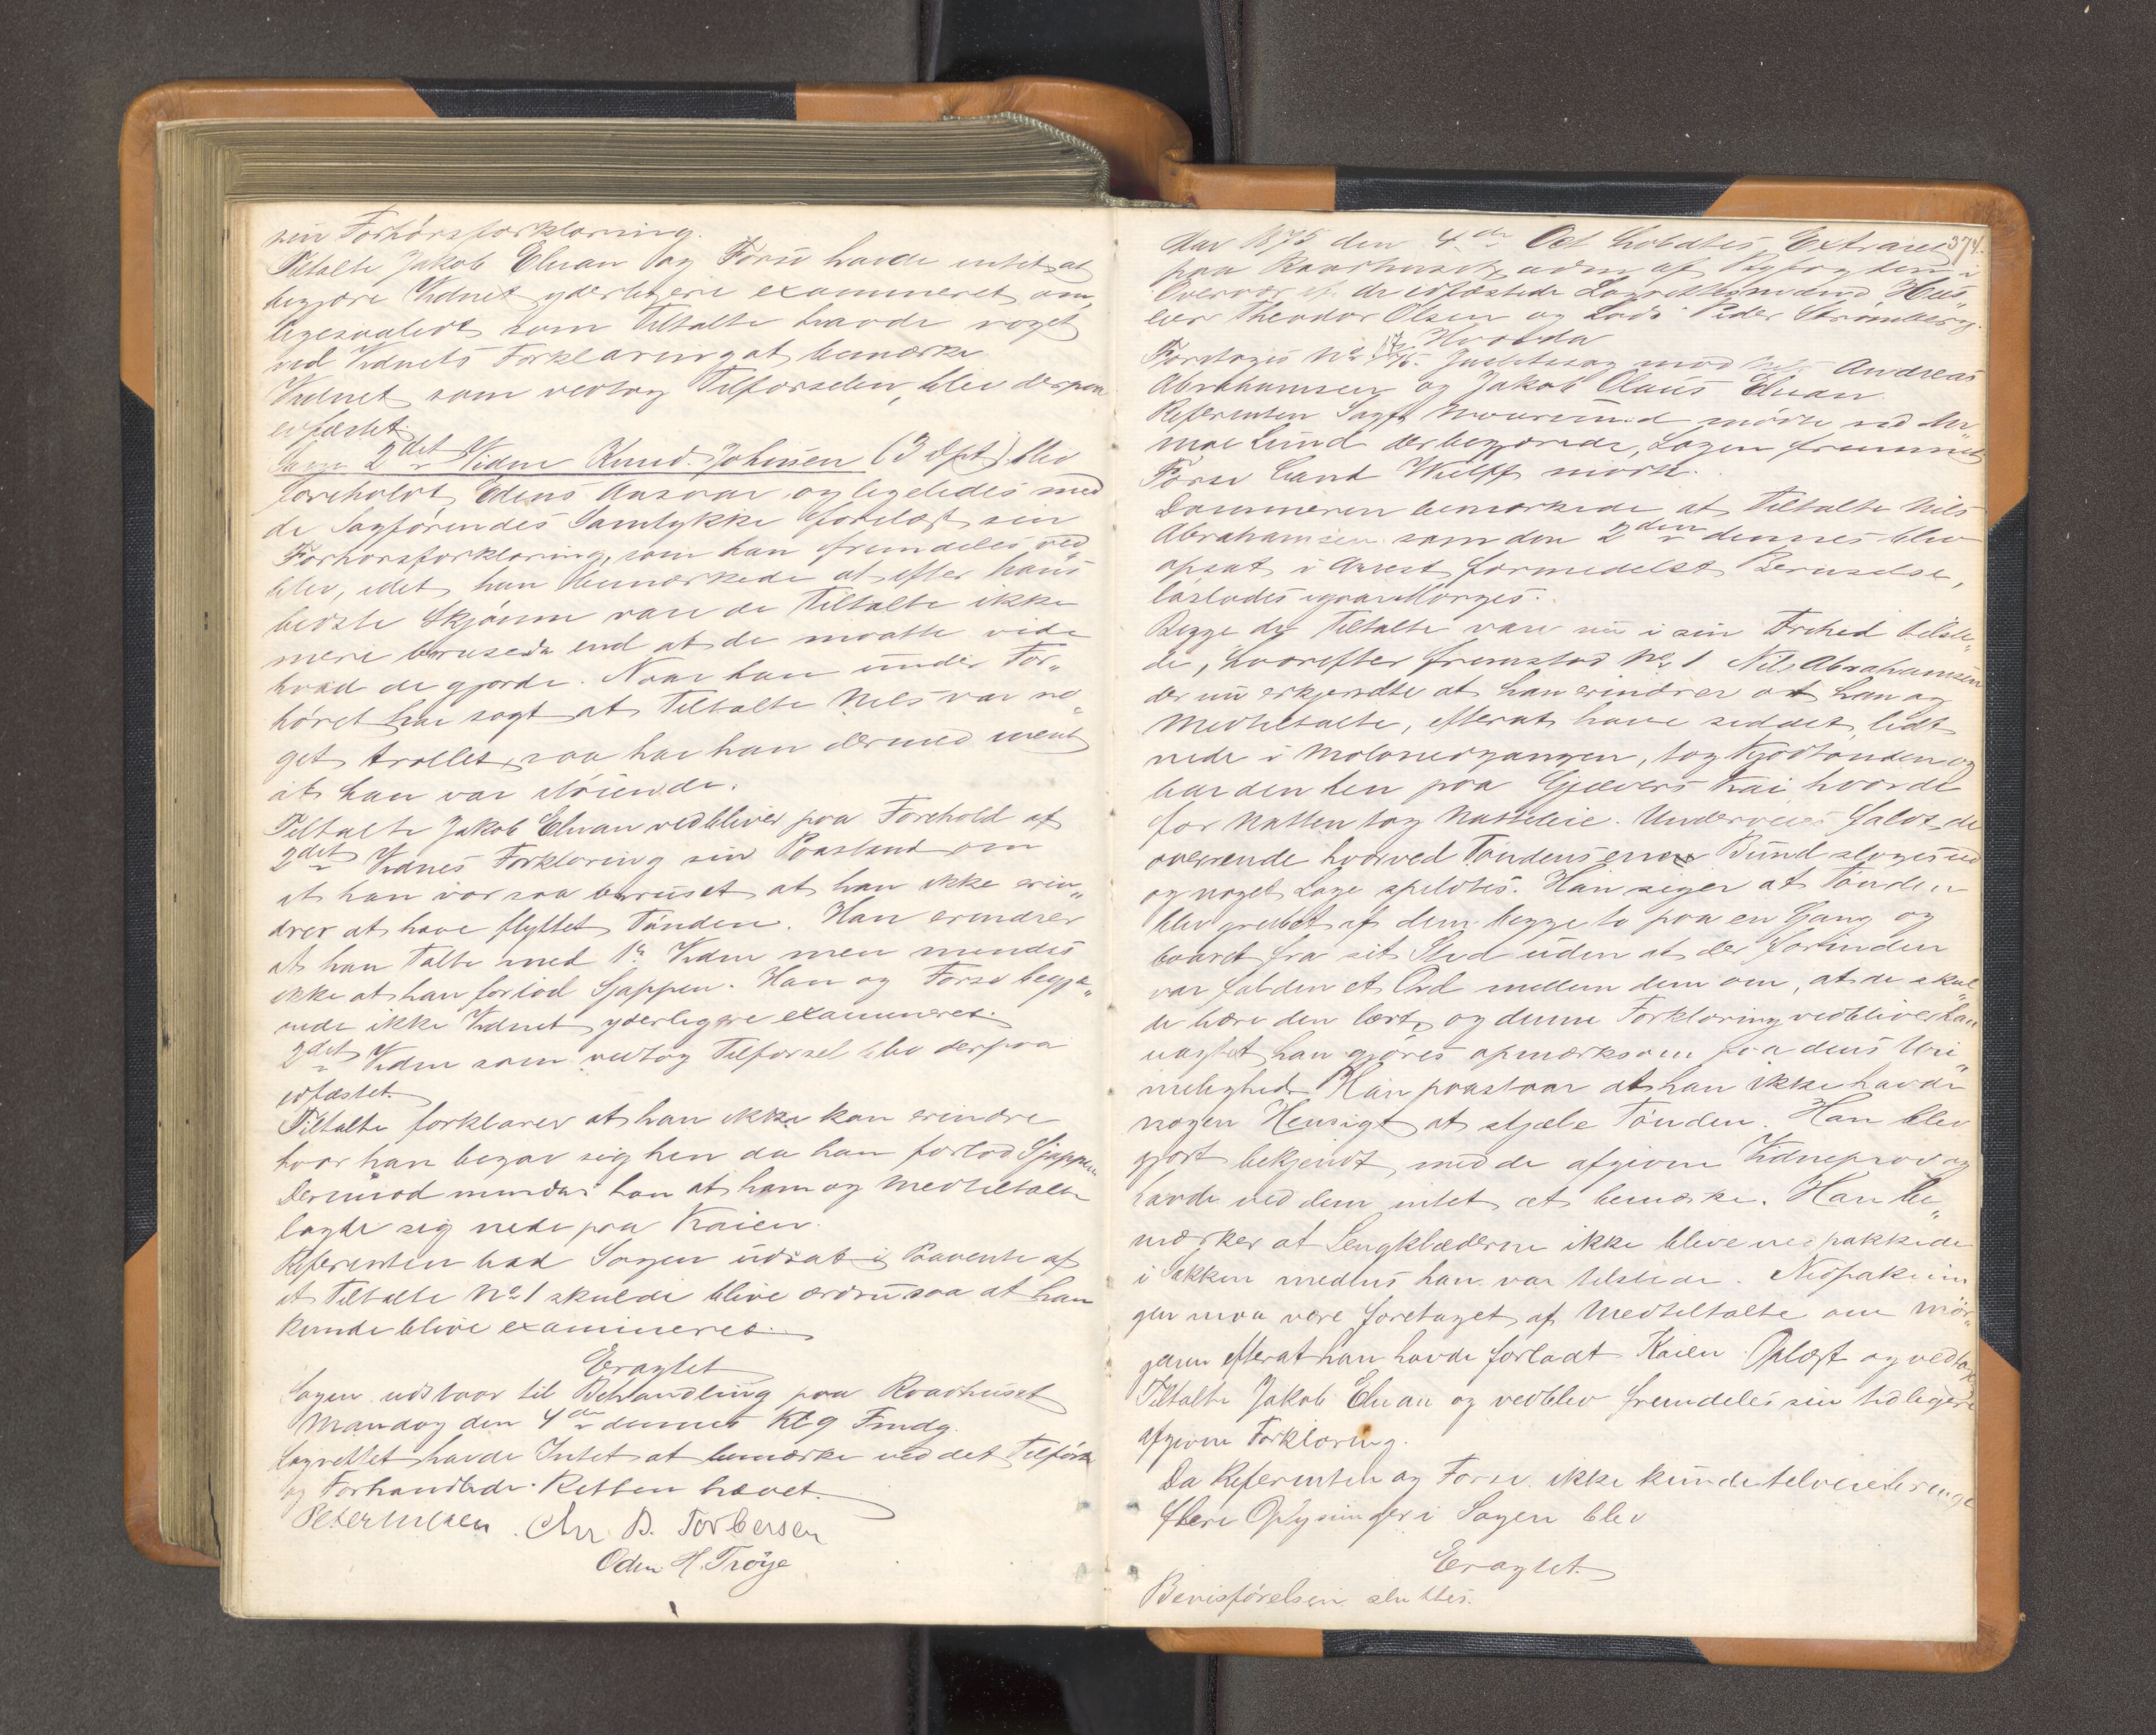 sin Forhörsforklaring.
Tiltalte Jakob Eluan og Forsv havde intet at
begjære Vidnet yderligere examineret om,
ligesaalidt som Tiltalte havde noget
ved Vidnets Forklaring at bemærke
Vidnet som vedtog Tilførselen, blev derpaa
edfæstet.
2det Vidne Knud Johnsen (3 Dpt) blev
foreholdt Edens Ansvar og ligeledes med
de Sagförendes Samtykke forelæst sin
Forhorsforklaring, som han fremdeles ved,,
blev, idet han bemærkede at efter hans
bedste Skjönne vare de Tiltalte ikke
mere berusede end at de maatte vide
hvad de gjorde. Naar han under For,,
höret har sagt at Tiltalte Nils var no,,
get trallet, saa har han dermed ment
at han var stöiende.
Tiltalte Jakob Eluan vedbliver paa Forehold af
2det Vidnes Forklaring sin Paastand om
at han var saa beruset at han ikke erin,,
drer at have flyttet Tönden. Han erindrer
at han talte med 1e Vidne men mindes
ikke at han forlod Sjappen. Han og Forsv begje,,
rede ikke Vidnet yderligere examineret.
2det Vidne som vedtog Tilførsel blev derpaa
edfæstet.
Tiltalte forklarer at han ikke kan erindre
hvor han begav sig hen da han forlod Sjappen
Derimod mindes han at ham og Medtiltalte
lagde sig nede paa Kaien.
Referenten bad Sagen udsat i Paavente af
at Tiltalte No 1 skulde blive ædru saa at han
kunde blive examineret.
Eragtet
Sagen udstaar til Behandling paa Raadhuset
Mandag den 4de dennes Kl 9 Fmdg.
Lagrettet havde Intet at bemærke ved det Tilförte
og Forhandlede. Retten hævet.
Peter Nilsen. Chr B. Torbersen
Oden H. Tröye
374.
Aar 1875 den 4de Oct holdtes Extraret
paa Raadhuset, adm af Byfogden i
Overvær af de edfæstede Lagrettesmænd Hus,,
eier Theodor Olsen og Lods Peder Strömberg.
Hvorda
Foretoges No 17/75. Justitssag mod Nils Andreas
Abrahamsen og Jakob Olaus Eluan.
Referenten Sagf. mödte ved
Lund der begjærede Sagen fremmet
Forsv Cand Wulff mödte.
Dommeren bemærkede at Tiltalte Nils
Abrahamsen som den 2den dennes blev
opsat i Arrest formedelst Beruselse,
lösladtes igaar Morges.
Begge de Tiltalte vare nu i sin Frihed tilste,,
de, hvorefter fremstod No 1 Nils Abrahamsen
der nu erkjendte at han erindrer at han og
Medtiltalte, efterat have siddet lidt
nede i Molonedgangen, tog Kjödtönden og
bar den hen paa Gjævers Kai hvor de
for Natten tog Natteleie. Underveis faldt de
overende hvorved Töndens ene Bund sloges ud
og noget Lage spildtes. Han siger at Tönden
blev grebet af dem begge to paa en Gang og
baaret fra sit Sted uden at der forinden
var falden et Ord mellem dem om, at de skul,,
de bære den bort, og denne Forklaring vedbliver han
uagtet han gjöres opmærksom paa dens Uri,,
melighed. Han paastaar at han ikke havde
nogen Hensigt at stjæle Tönden. Han blev
gjort bekjendt med de afgivne Vidneprov og
havde ved dem intet at bemærke. Han be,,
mærker at Sengklæderne ikke bleve nedpakkede
i Sækken medens han var tilstede. Nedpaknin
gen maa være foretaget af Medtiltalte om Mor,,
genen efterat han havde forladt Kaien. Oplæst og vedtaget
Tiltalte Jakob Eluan og vedblev fremdeles sin tidligere
afgivne Forklaring.
Da Referenten og Forsv. ikke kunde tilveiebringe
flere Oplysninger i Sagen blev
Eragtet.
Bevisförelsen sluttes.